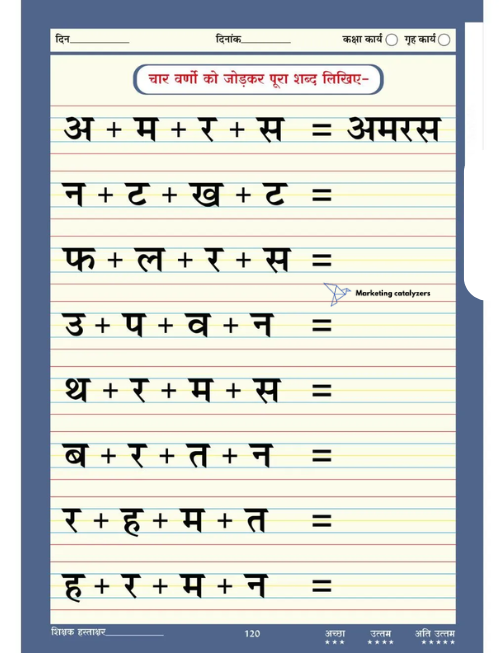 दिन____________ दिनांक__________ कक्षा कार्य गृह कार्य
चार वर्णो को जोड़कर पूरा शब्द लिखिए-
अ + म + र + स = अमरस
न + ट + ख + ट =
फ + ल + र + स =
Marketing catalyzers
उ + प + व + न =
थ + र + म + स =
ब + र + त + न =
र + ह + म + त =
ह + र + म + न =
शिक्षक हस्ताक्षर____________ 120 अच्छा उत्तम अति उत्तम
★★★ ★★★★ ★★★★★